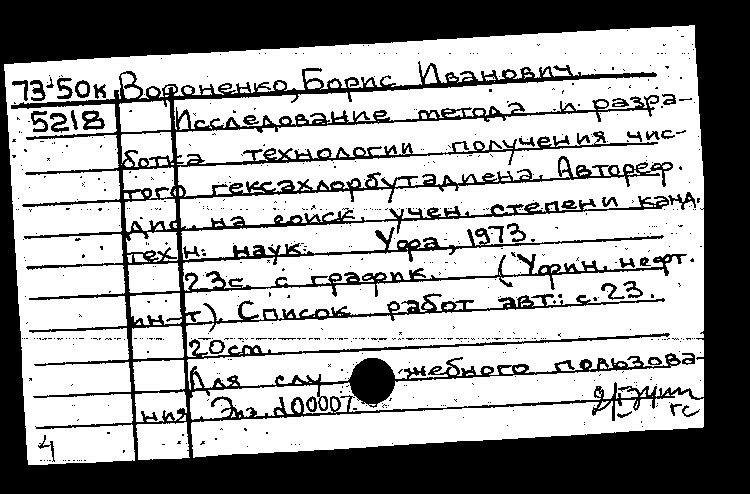 73-50к Вороненко, Борис Иванович.
5218 Исследование метода и разра-
ботка технологии получения чис-
того гексахлорбутадиена. Автореф.
дис. на соиск. учен. степени канд.
техн. наук. Уфа, 1973.
23с. с график. (Уфин. нефт.
ин-т). Список работ авт.: с.23.
20см.
Для служебного пользова-
ния. Экз. d00007.
гс
4